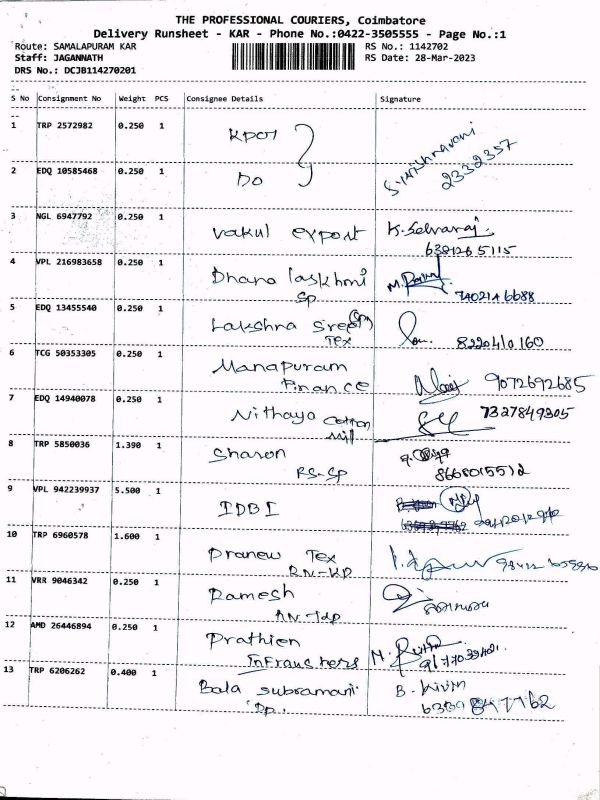 THE PROFESSIONAL COURIERS, Coimbatore
Delivery Runsheet - KAR - Phone No.:0422-3505555 - Page No.:1
Route: SAMALAPURAM KAR RS No.: 1142702
Staff: JAGANNATH RS Date: 28-Mar-2023
DRS No.: DCJB114270201
S No Consignment No Weight PCS Consignee Details Signature
1 TRP 2572982 0.250 1 KPOT
2332357
2 EDQ 10585468 0.250 1 DO
3 NGL 6947792 0.250 1 Vakul export K. Selvaraj
638126 5115
4 VPL 216983658 0.250 1 Dhana laskhmi
SP 740214 6688
5 EDQ 13455540 0.250 1 Lakshna Sree
Tex 8220410160
6 TCG 50353305 0.250 1 Manapuram
Finance 9072692685
7 EDQ 14940078 0.250 1 Nithaya Cotton 7327849305
Mill
8 TRP 5850036 1.390 1 Sharon
RS-SP 8668015512
9 VPL 942239937 5.500 1 IDBI
10 TRP 6960578 1.600 1 Pranew Tex
RN-KP
11 VRR 9046342 0.250 1 Ramesh
12 AMD 26446894 0.250 1 Prathien
13 TRP 6206262 0.400 1 Bala subramani B. Kivin